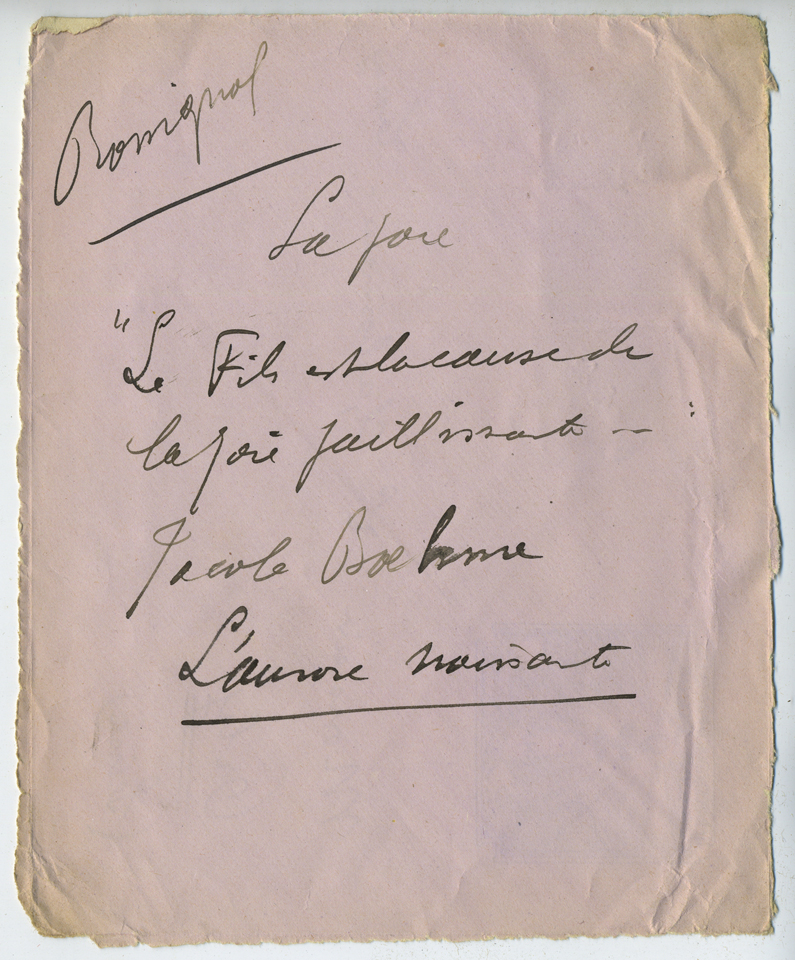 Rossignol
La joie
"Le Fils est la cause de
la joie jaillissante — :
Jacob Boehme
L'aurore naissante